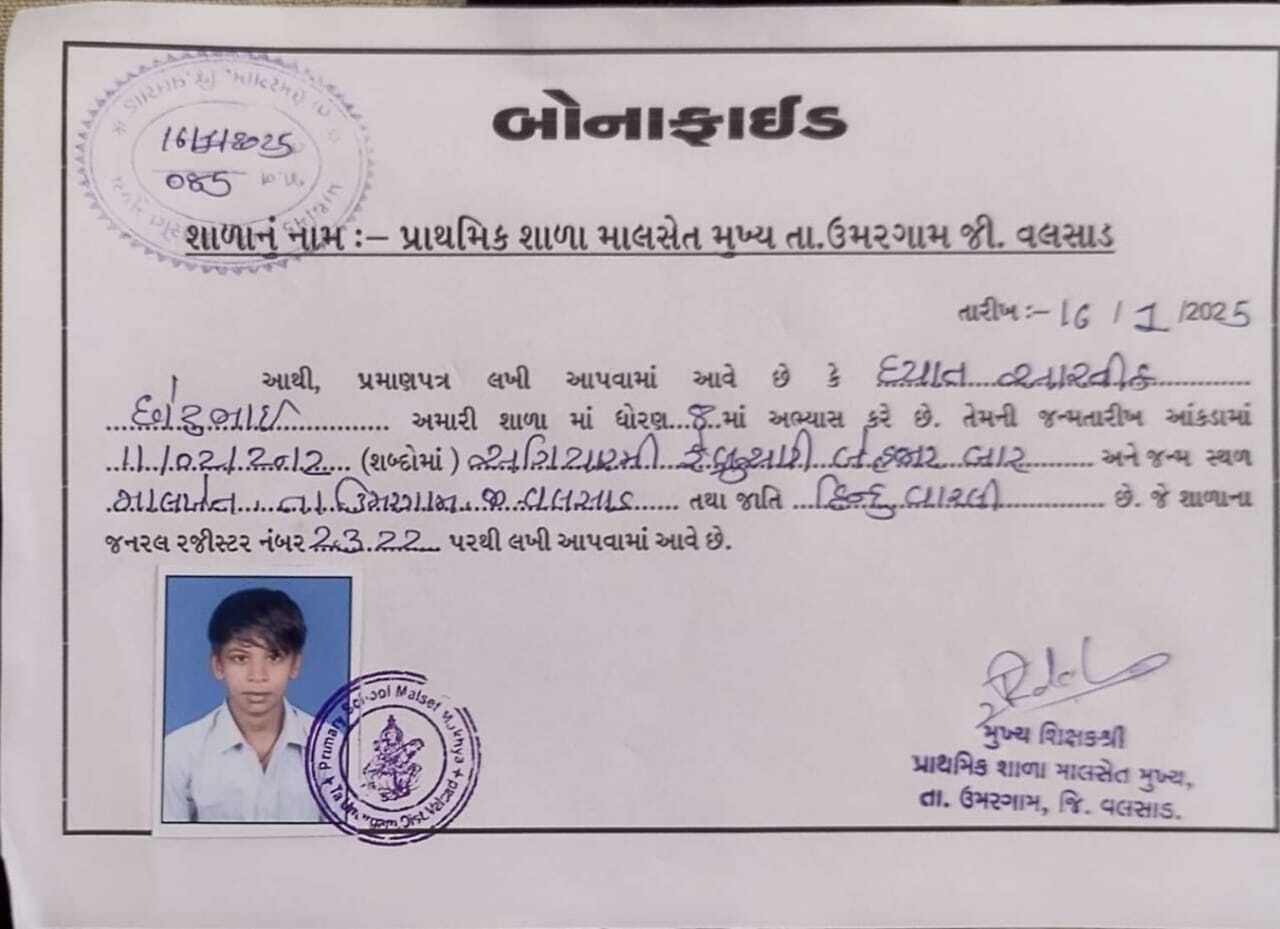 બોનાફાઈડ
16/1/2025
085
શાળાનું નામ :– પ્રાથમિક શાળા માલસેત મુખ્ય તા.ઉમરગામ જી. વલસાડ
તારીખ :– 16 / 1 /2025
આથી, પ્રમાણપત્ર લખી આપવામાં આવે છે કે
અમારી શાળા માં ધોરણ 8 માં અભ્યાસ કરે છે. તેમની જન્મતારીખ આંકડામાં
11/02/2012 (શબ્દોમાં ) અગિયારમી ફેબ્રુઆરી બે હજાર બાર અને જન્મ સ્થળ
માલખેત તા. ઉમરગામ જી. વલસાડ તથા જાતિ હિન્દુ વારલી છે. જે શાળાના
જનરલ રજીસ્ટર નંબર 2322 પરથી લખી આપવામાં આવે છે.
Primary School Malset Mukhya
Dist. Valsad
મુખ્ય શિક્ષકશ્રી
પ્રાથમિક શાળા માલસેત મુખ્ય,
તા. ઉમરગામ, જિ. વલસાડ.